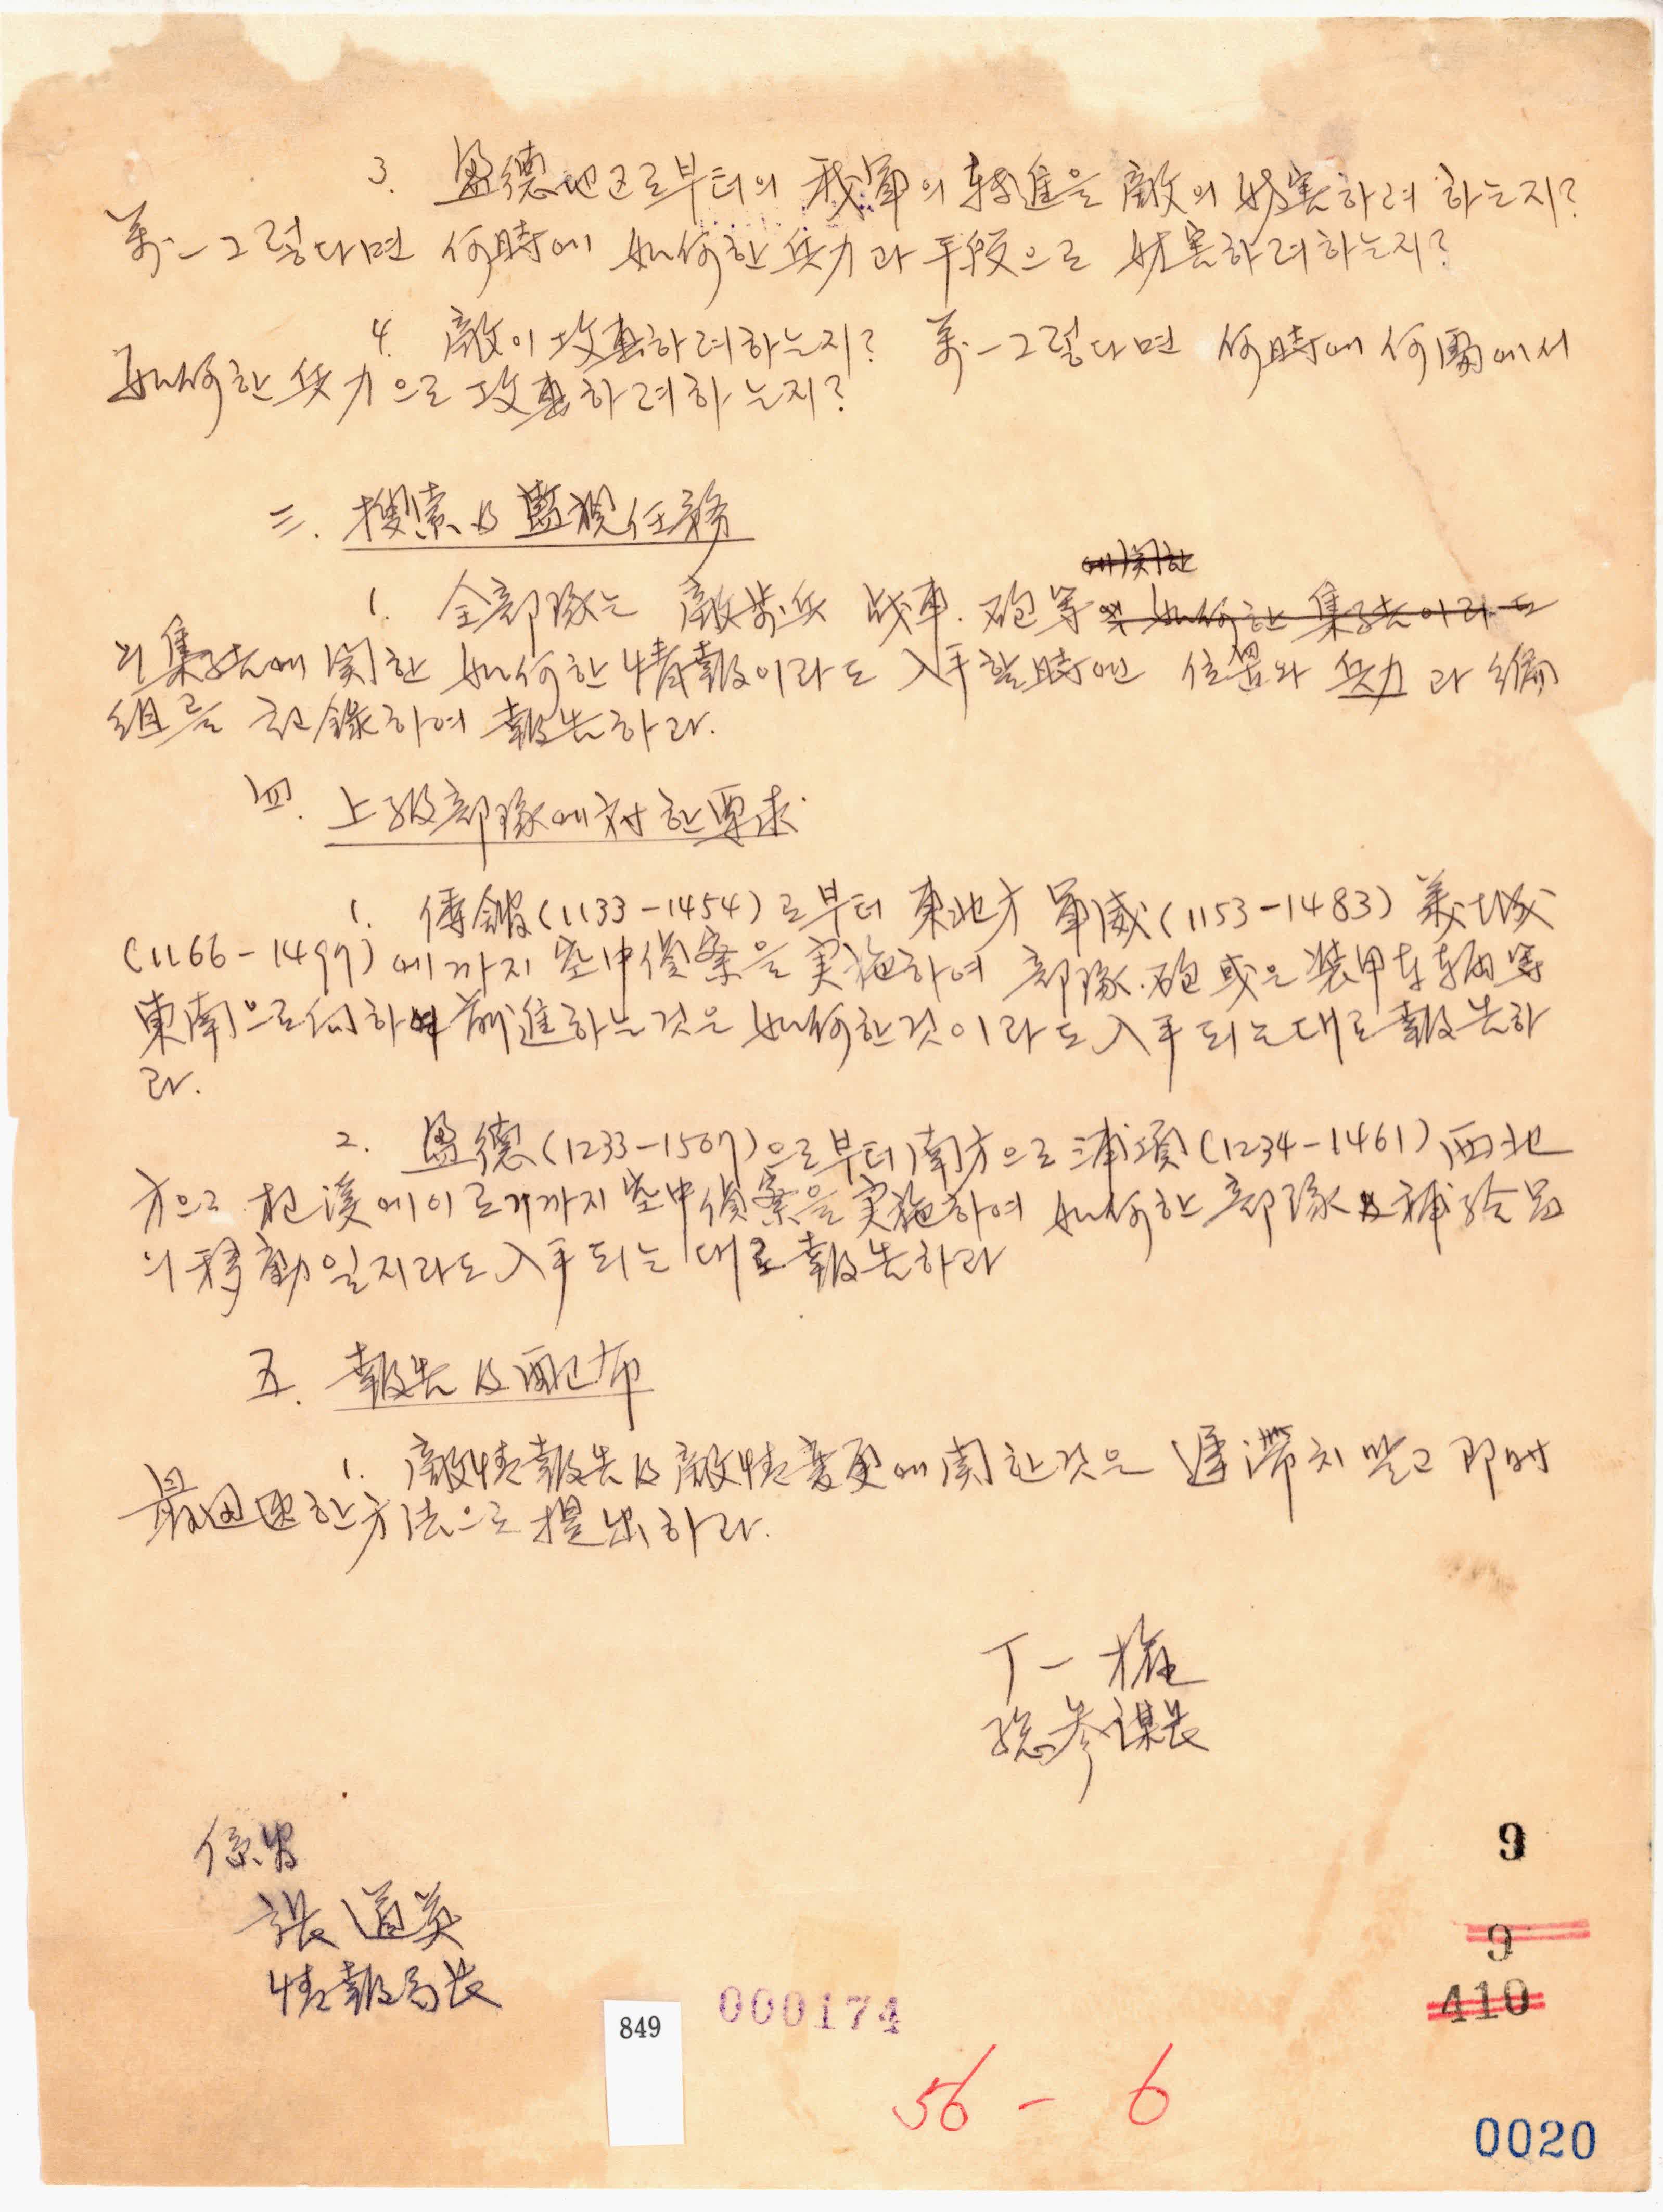 3. 盈德地区로부터의 我軍의 転進을 敵의 妨害하려 하는지?
萬一그렇다면 何時에 如何한 兵力과 手段으로 妨害하려하는지?
4. 敵이 攻擊하려하는지? 萬一그렇다면 何時에 何處에서
如何한 兵力으로 攻擊하려하는지?
三. 搜索 及 監視任務
에 関한
1. 全部隊는 敵步兵 战車. 砲等의 如何한 集結이라도
의 集結에 関한 如何한 情報이라도 入手할時에는 位置와 兵力과 編
組를 記錄하여 報告하라.
四. 上級部隊에 対한 要求
1. (1133-1454)로부터 東北方 軍威(1153-1483) 義城
(1166-1497)에까지 空中偵察을 実施하여 部隊. 砲 或은 装甲車輛等
東南으로 向하여 前進하는것은 如何한것이라도 入手되는대로 報告하
라.
2. 盈德(1233-1507)으로부터 南方으로 浦項(1234-1461) 西北
方으로 杞溪에 이르기까지 空中偵察을 実施하여 如何한 部隊 及 補給品
의 移動일지라도 入手되는 대로 報告하라
五. 報告 及 配布
1. 敵情報告 及 敵情変更에 関한것은 遅滞치 말고 即時
最迅速한 方法으로 提出하라.
丁一権
総参謀長
張道英
情報局長
9
9
410
849
000174
56-6
0020